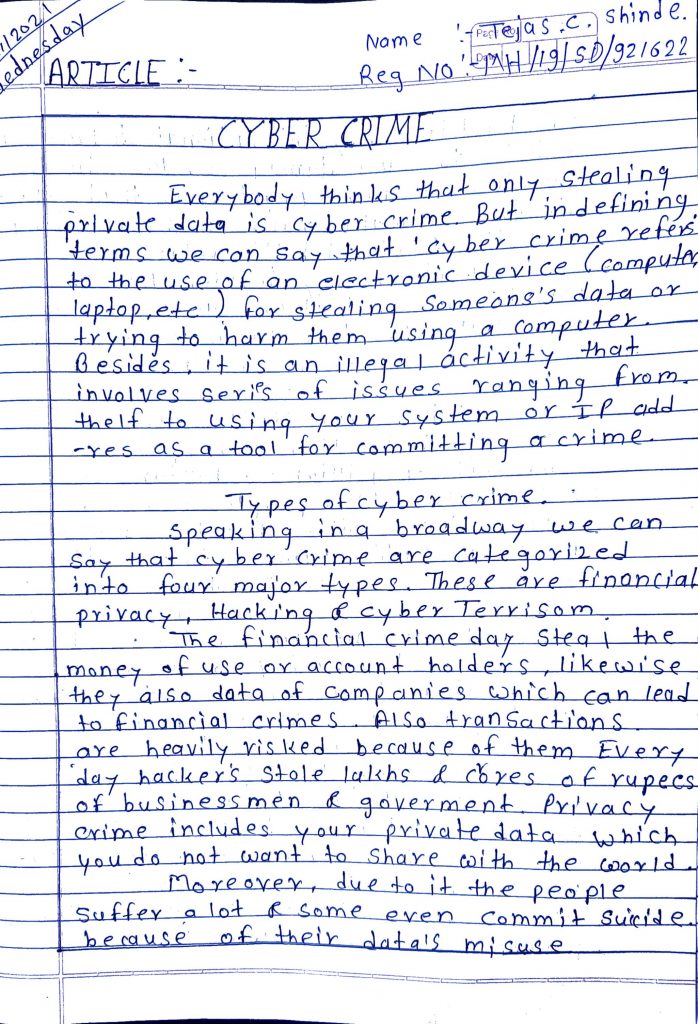 /2021
Wednesday
Name :- Tejas .C. Shinde.
ARTICLE :-
Reg No :- MH/19/SD/921622
CYBER CRIME
Everybody thinks that only stealing
private data is cyber crime. But in defining
terms we can say that 'cyber crime refers
to the use of an electronic device (computer,
laptop, etc.) for stealing someone's data or
trying to harm them using a computer.
Besides, it is an illegal activity that
involves series of issues ranging from.
thelf to using your system or IP add
-res as a tool for committing a crime.
Types of cyber crime.
Speaking in a broadway we can
say that cyber crime are categorized
into four major types. These are financial
privacy, Hacking & cyber Terrisom.
The financial crime day steal the
money of use or account holders, likewise
they also data of companies which can lead
to financial crimes. Also transactions
are heavily risked because of them Every
day hacker's stole lakhs & cores of rupees
of businessmen & goverment. Privacy
crime includes your private data which
you do not want to share with the world.
Moreover, due to it the people
suffer a lot & some even commit suicide.
because of their data's misuse